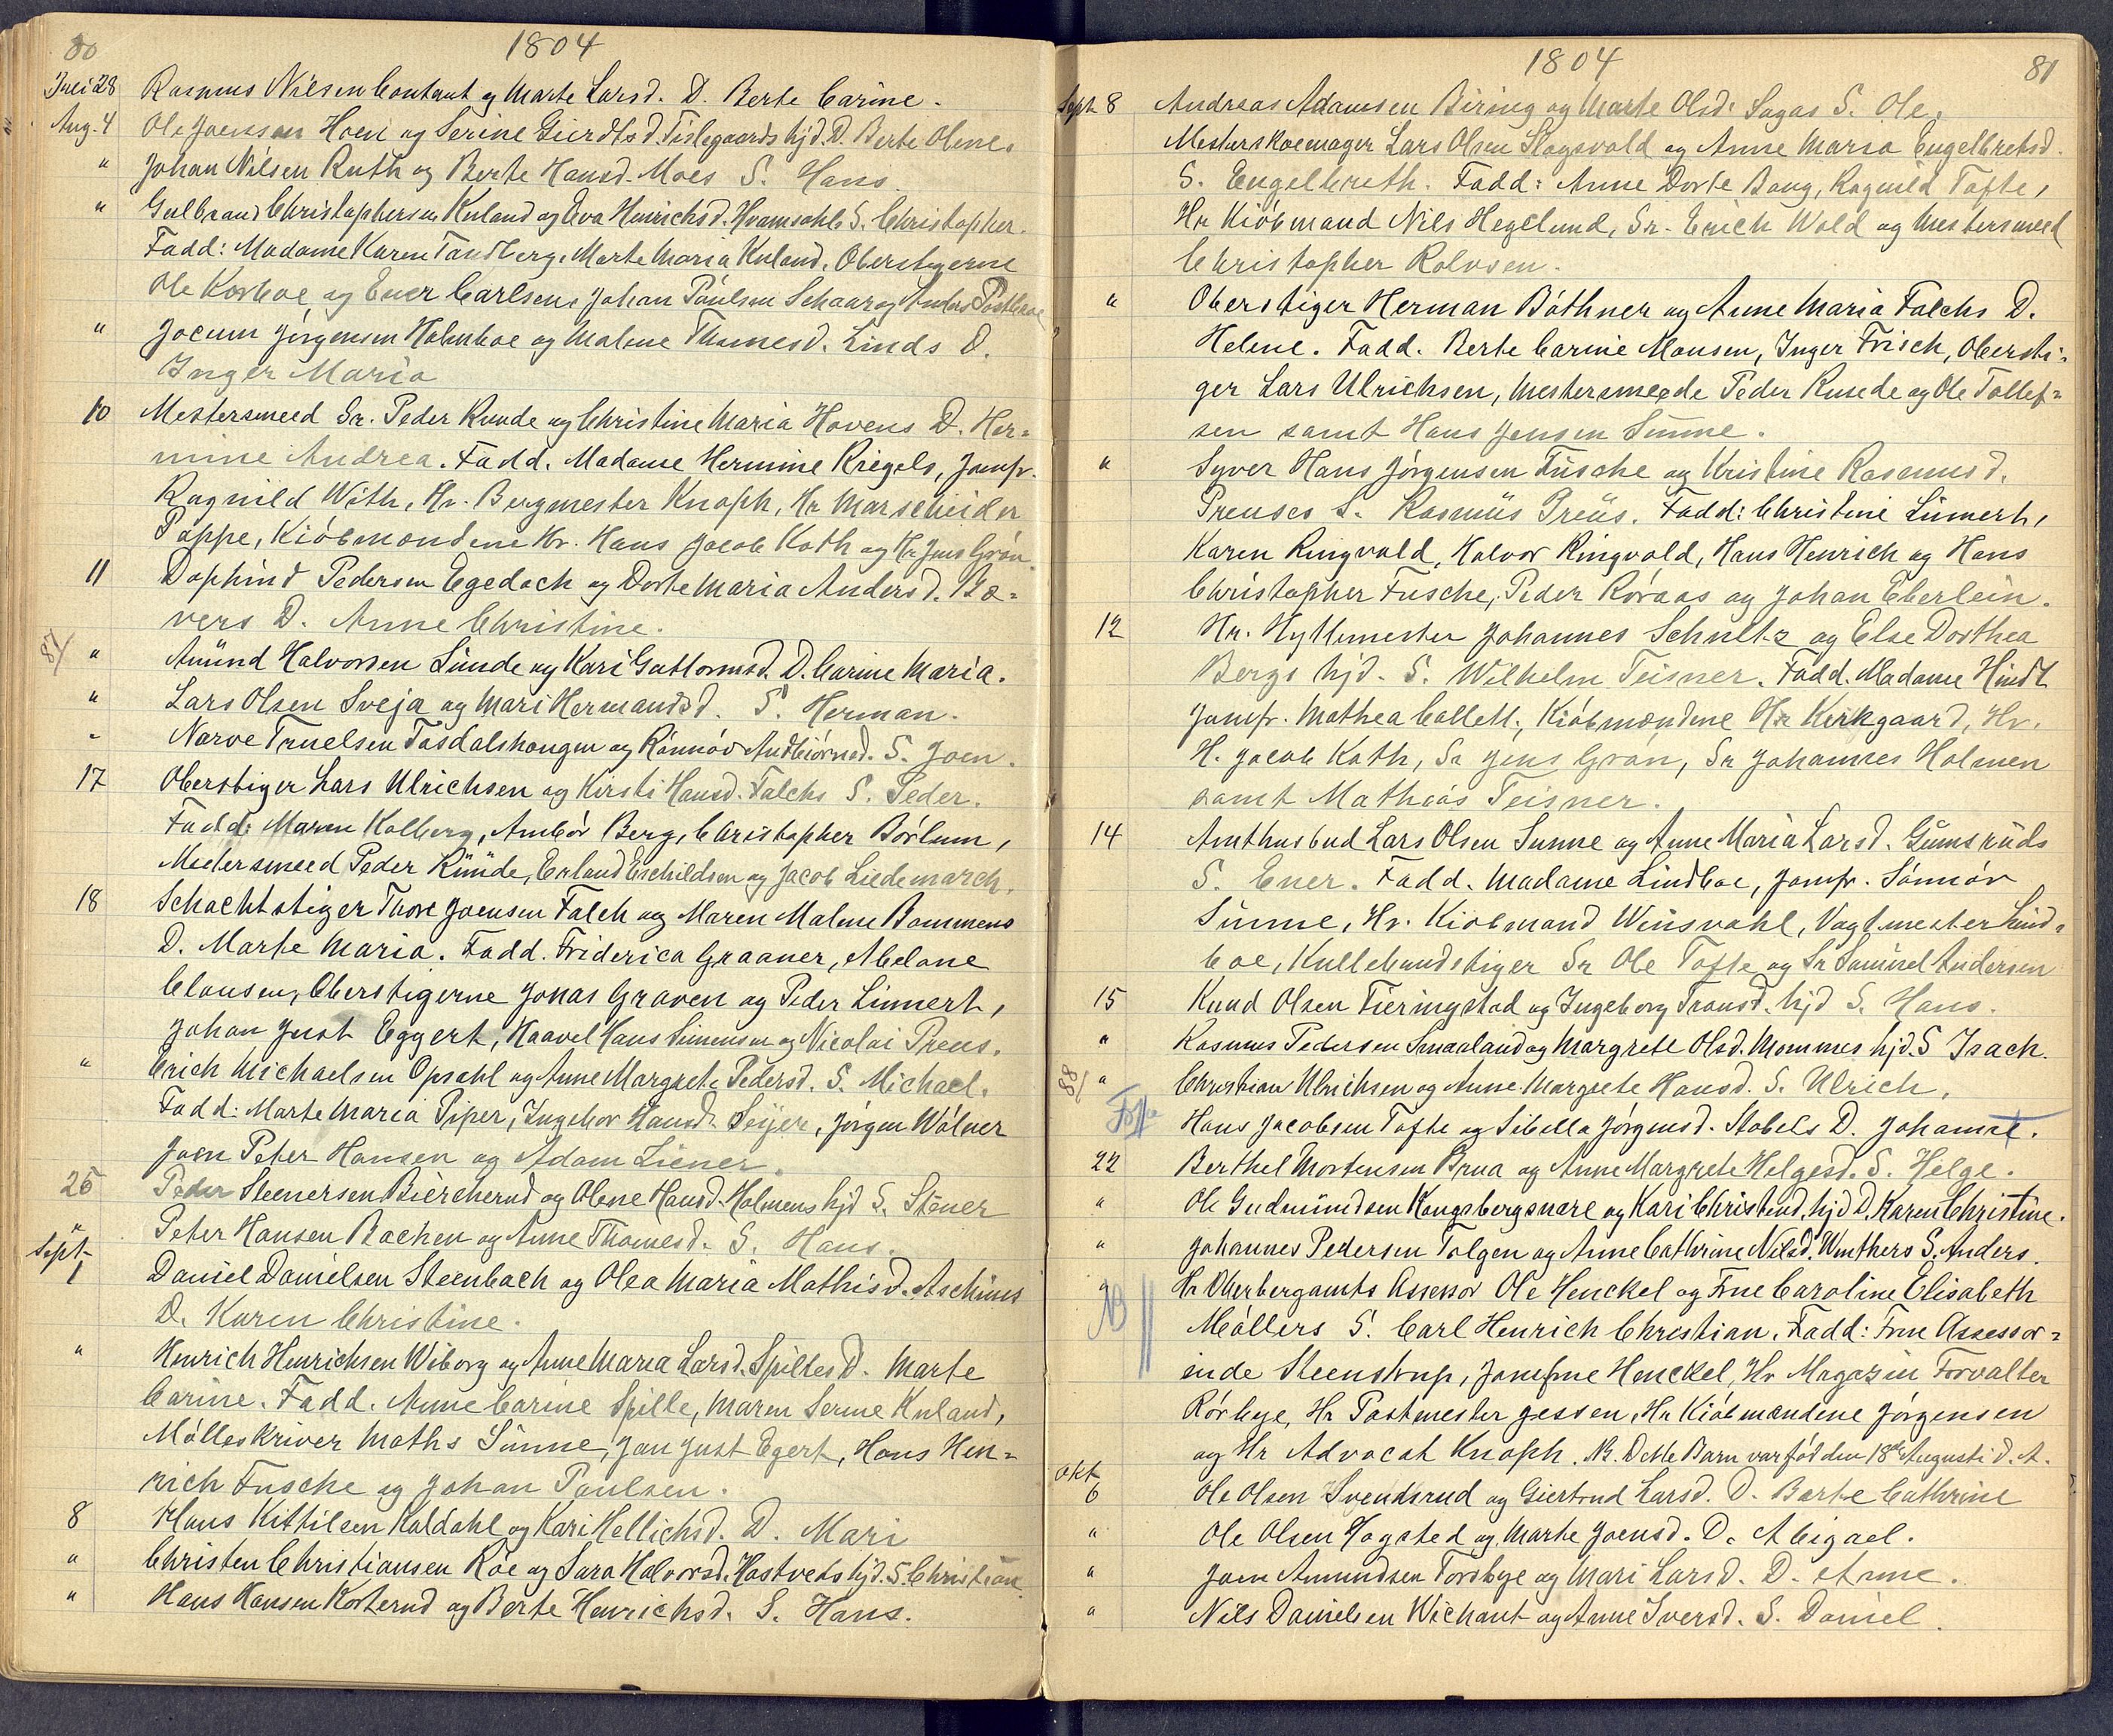 80
1804
Juli 28 Rasmus Nilsen Contant og Marte Larsd. D. Berte Carine.
Aug. 4 Ole Joensen Hoen og Serine Gierdtsd. Tislegaards hjd. D. Berte Olene.
" Johan Nilsen Ruth og Berte Hansd. Moes S. Hans.
" Gulbrand Christophersen Knland og Eva Henrichsd. Hvamsahls S. Christopher.
Fadd: Madame Karen Tandberg, Marte Maria Knland, Oberstigerne
Ole Korboe og Ener Carlsen, Johan Paulsen Schaar og Anders Postboe
" Jocum Jørgensen Holmboe og Malene Thomesd. Linds D.
Inger Maria
10 Mestersmeed Sr. Peder Runde og Christine Maria Hovens D. Her=
mine Andrea. Fadd. Madame Hermine Kriegels, Jomfr.
Ragnild With, Hr. Bergmester Knoph, Hr Marscheider
Poppe, Kiøbmondene Hr. Hans Jacob Koth og Hr Jens Grøn.
11 Dophind Pedersen Egedach og Dorte Maria Andersd. Bæ=
vers D. Anne Christine.
87 " Amünd Halvorsen Lünde og Kari Guttormsd. D. Carine Maria.
" Lars Olsen Sveja og Mari Hermandsd. S. Herman.
" Narve Truelsen Tasdalshougen og Rønnøv Andbiørnsd. S. Joen.
17 Oberstiger Lars Ulrichsen og Kirsti Hansd. Falchs S. Peder.
Fadd: Maren Kolberg, Ambør Berg, Christopher Børlum,
Mestersmeed Peder Ründe, Erland Eschildsen og Jacob Liedemarch.
18 Schachtstiger Thore Joensen Falch og Maren Malene Bommens
D. Marte Maria. Fadd. Friderica Graaner, Abelone
Clausen, Oberstigerne Jonas Graven og Peder Linnert,
Johan Just Eggert, Haavel Hans Simensen og Nicolai Preus.
" Erich Michaelsen Opsahl og Anne Margrete Pedersd. S. Michael.
Fadd: Marte Maria Piper, Ingebor Hansd. Seijer, Jørgen Wølner
Joen Peter Hansen og Adam Liener.
25 Peder Steenersen Biercherud og Olene Hansd. Holmens hjd S. Stener
" Peter Hansen Bachen og Anne Thomesd. S. Hans.
Sept. 1 Daniel Danielsen Steenbach og Olea Maria Mathisd. Aschims
D. Karen Christine.
" Henrich Henrichsen Wiborg og Anne Maria Larsd. Spilles D. Marte
Carine. Fadd. Anne Carine Spille, Maren Serine Knland,
Mølleskriver Maths Sünne, Jan Just Egert, Hans Hen=
rich Fusche og Johan Paulsen.
8 Hans Kittilsen Kaldahl og Kari Hellichsd. D. Mari
" Christen Christiansen Roe og Sara Halvorsd. Hastveds hjd. S. Christian
" Hans Hansen Korterud og Berte Henrichsd. S. Hans.
1804
81
Sept. 8 Andreas Adamsen Biring og Marte Olsd. Sagas S. Ole.
Mesterskoemager Lars Olsen Skogsvold og Anne Maria Engelbretsd.
S. Engelbreth. Fadd: Anne Dorte Bang, Ragnild Tofte,
Hr Kiøbmand Nils Hegelund, Sr. Erich Wold og Mestersmeed
Christopher Rolvsen.
" Oberstiger Herman Bøthner og Anne Maria Falchs D.
Helene. Fadd. Berte Carine Monsen, Inger Frisch, Obersti=
ger Lars Ulrichsen, Mestersmeede Peder Runde og Ole Tollef=
sen samt Hans Jensen Sünne.
" Syver Hans Jørgensen Füsche og Kristine Rasmusd.
Preuses S. Rasmüs Preüs. Fadd: Christine Linnert,
Karen Ringvold, Halvor Ringvold, Hans Henrich og Hans
Christopher Fusche, Peder Røraas og Johan Eberlein.
12 Hr. Hyttemester Johannes Schultz og Else Dorthea
Bergs hjd. S. Wilhelm Teisner. Fadd. Madame Hindt
Jomfr. Mathea Collett, Kiøbmændene Hr Kirkgaard, Hr.
H. Jacob Koth, Sr Jens Grøn, Sr Johannes Holmen
samt Mathias Teisner.
14 Amthusbud Lars Olsen Sunne og Anne Maria Larsd. Gumsrüds
S. Ener. Fadd. Madame Lindboe, Jomfr. Sønnøv
Sünne, Hr. Kiøbmand Winsvahl, Vagtmester Lind=
boe, Kullebundstiger Sr Ole Tofte og Sr Samuel Andersen
15 Knud Olsen Fieringstad og Ingeborg Transd. hjd S. Hans.
" Rasmus Pedersen Smaaland og Margrete Olsd. Mommes hjd. S Isach.
88 " Christian Ulrichsen og Anne Margrete Hansd. S. Ulrich.
Tofte Hans Jacobsen Tofte og Sibella Jørgensd. Stobels D. Johanne.
22 Berthel Mortensen Brua og Anne Margrete Helgesd. S. Helge.
" Ole Gudmündsen Kongsbergsnare og Kari Christensd. hjd D. Karen Christine.
" Johannes Pedersen Tolgen og Anne Cathrine Nilsd. Winthers S. Anders.
NB " Hr Oberbergamts Assessor Ole Henckel og Frue Caroline Elisabeth
Møllers S. Carl Henrich Christian. Fadd: Frue Assessor=
inde Steenstrup, Jomfrue Henckel, Hr Magazin Forvalter
Rørbye, Hr Postmester Jessen, Hr Kiøbmændene Jørgensen
og Hr Advocat Knoph. NB. Dette Barn var fød den 18de Augusti d. A.
Okt 6 Ole Olsen Svendsrud og Giertrud Larsd. D. Berte Cathrine
" Ole Olsen Hogsted og Marte Joensd. D. Abigael.
" Joen Amundsen Torsbye og Mari Larsd. D. Anne.
" Nils Danielsen Wichant og Anne Iversd. S. Daniel.